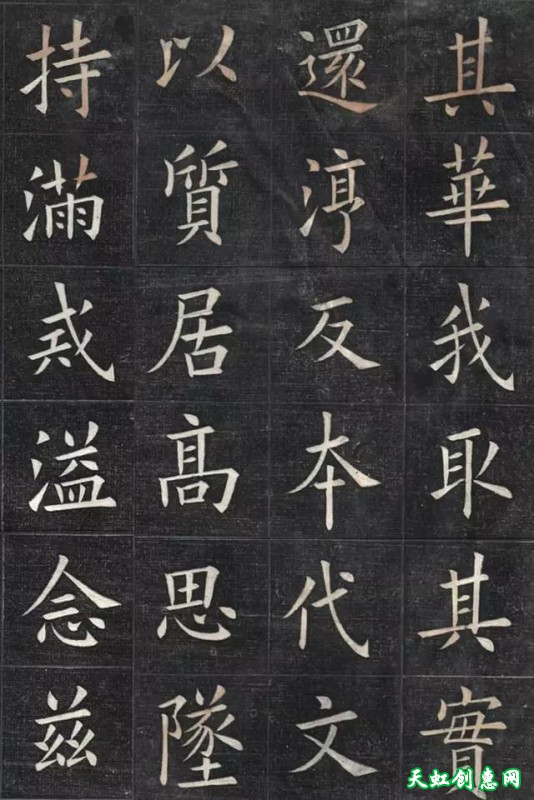 其華我取其實
還淳反本代文
以質居高思墜
持滿戒溢念茲
天虹创惠网